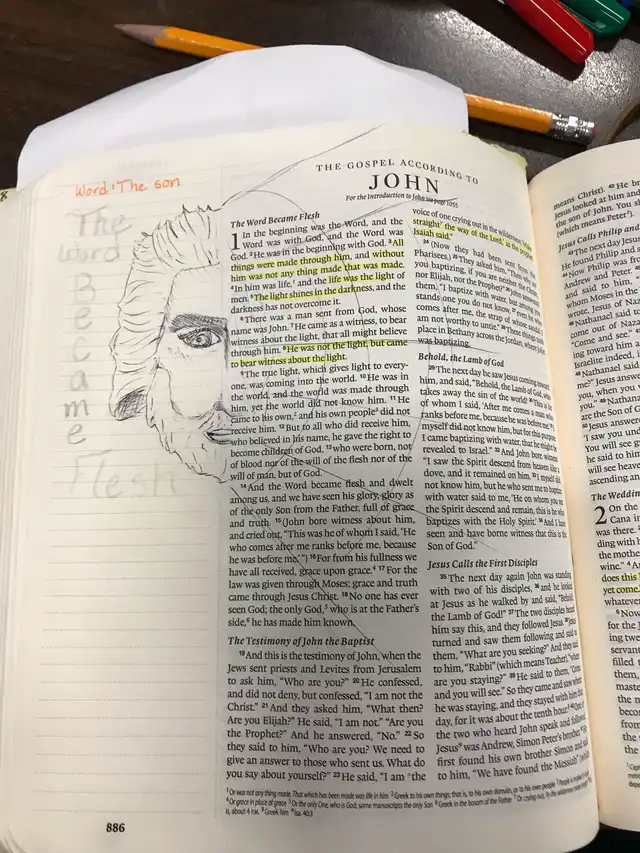 Word: The son
The
Word
B
e
c
a
m
e
Flesh
THE GOSPEL ACCORDING TO
JOHN
For the Introduction to John see page 1055
The Word Became Flesh
1 In the beginning was the Word, and the
Word was with God, and the Word was
God. 2 He was in the beginning with God. 3 All
things were made through him, and without
him was not any thing made that was made.
4 In him was life,1 and the life was the light of
men. 5 The light shines in the darkness, and the
darkness has not overcome it.
6 There was a man sent from God, whose
name was John. 7 He came as a witness, to bear
witness about the light, that all might believe
through him. 8 He was not the light, but came
to bear witness about the light.
9 The true light, which gives light to every-
one, was coming into the world. 10 He was in
the world, and the world was made through
him, yet the world did not know him. 11 He
came to his own,2 and his own people3 did not
receive him. 12 But to all who did receive him,
who believed in his name, he gave the right to
become children of God, 13 who were born, not
of blood nor of the will of the flesh nor of the
will of man, but of God.
14 And the Word became flesh and dwelt
among us, and we have seen his glory, glory as
of the only Son from the Father, full of grace
and truth. 15 (John bore witness about him,
and cried out, "This was he of whom I said, 'He
who comes after me ranks before me, because
he was before me.'") 16 For from his fullness we
have all received, grace upon grace.4 17 For the
law was given through Moses; grace and truth
came through Jesus Christ. 18 No one has ever
seen God; the only God,5 who is at the Father's
side,6 he has made him known.
The Testimony of John the Baptist
19 And this is the testimony of John, when the
Jews sent priests and Levites from Jerusalem
to ask him, "Who are you?" 20 He confessed,
and did not deny, but confessed, "I am not the
Christ." 21 And they asked him, "What then?
Are you Elijah?" He said, "I am not." "Are you
the Prophet?" And he answered, "No." 22 So
they said to him, "Who are you? We need to
give an answer to those who sent us. What do
you say about yourself?" 23 He said, "I am the
voice of one crying out in the wilderness, 'Make
straight7 the way of the Lord,' as the prophet
Isaiah said."
24 (Now they had been sent from the
Pharisees.) 25 They asked him, "Then why are
you baptizing, if you are neither the Christ,
nor Elijah, nor the Prophet?" 26 John answered
them, "I baptize with water, but among you
stands one you do not know, 27 even he who
comes after me, the strap of whose sandal I
am not worthy to untie." 28 These things took
place in Bethany across the Jordan, where John
was baptizing.
Behold, the Lamb of God
29 The next day he saw Jesus coming toward
him, and said, "Behold, the Lamb of God, who
takes away the sin of the world! 30 This is he
of whom I said, 'After me comes a man who
ranks before me, because he was before me.' 31 I
myself did not know him, but for this purpose
I came baptizing with water, that he might be
revealed to Israel." 32 And John bore witness:
"I saw the Spirit descend from heaven like a
dove, and it remained on him. 33 I myself did
not know him, but he who sent me to baptize
with water said to me, 'He on whom you see
the Spirit descend and remain, this is he who
baptizes with the Holy Spirit.' 34 And I have
seen and have borne witness that this is the
Son of God."
Jesus Calls the First Disciples
35 The next day again John was standing
with two of his disciples, 36 and he looked
at Jesus as he walked by and said, "Behold,
the Lamb of God!" 37 The two disciples heard
him say this, and they followed Jesus. 38 Jesus
turned and saw them following and said to
them, "What are you seeking?" And they said
to him, "Rabbi" (which means Teacher), "where
are you staying?" 39 He said to them, "Come
and you will see." So they came and saw where
he was staying, and they stayed with him that
day, for it was about the tenth hour.8 40 One of
the two who heard John speak and followed
Jesus9 was Andrew, Simon Peter's brother. 41 He
first found his own brother Simon and said
to him, "We have found the Messiah" (which
1 Or was not any thing made. That which has been made was life in him 2 Greek to his own things; that is, to his own domain, or to his own people 3 People is implied
4 Or grace in place of grace 5 Or the only One, who is God; some manuscripts the only Son 6 Greek in the bosom of the Father 7 Or crying out, 'In the wilderness make straight
is, about 4 P.M. 9 Greek him Isa. 40:3
886
8
means Christ). 42 He
Jesus looked at him and
the son of John. You sh
(which means Peter1).
Jesus Calls Philip and
43 The next day Jesus
He found Philip and s
44 Now Philip was from
Andrew and Peter. 4
and said to him,
whom Moses in the
wrote, Jesus of Naz
46 Nathanael said to
come out of Naza
"Come and see." 4
ing toward him a
Israelite indeed, i
48 Nathanael said
me?" Jesus answ
you, when you
you." 49 Nathan
are the Son of
50 Jesus answer
'I saw you und
You will see g
he said to him
will see heave
ascending an
The Wedding
2 On the
Cana i
was there.
ding with
the mothe
wine." 4 An
does this
yet come.
whatever
6 Now
for the J
ing twe
servant
filled